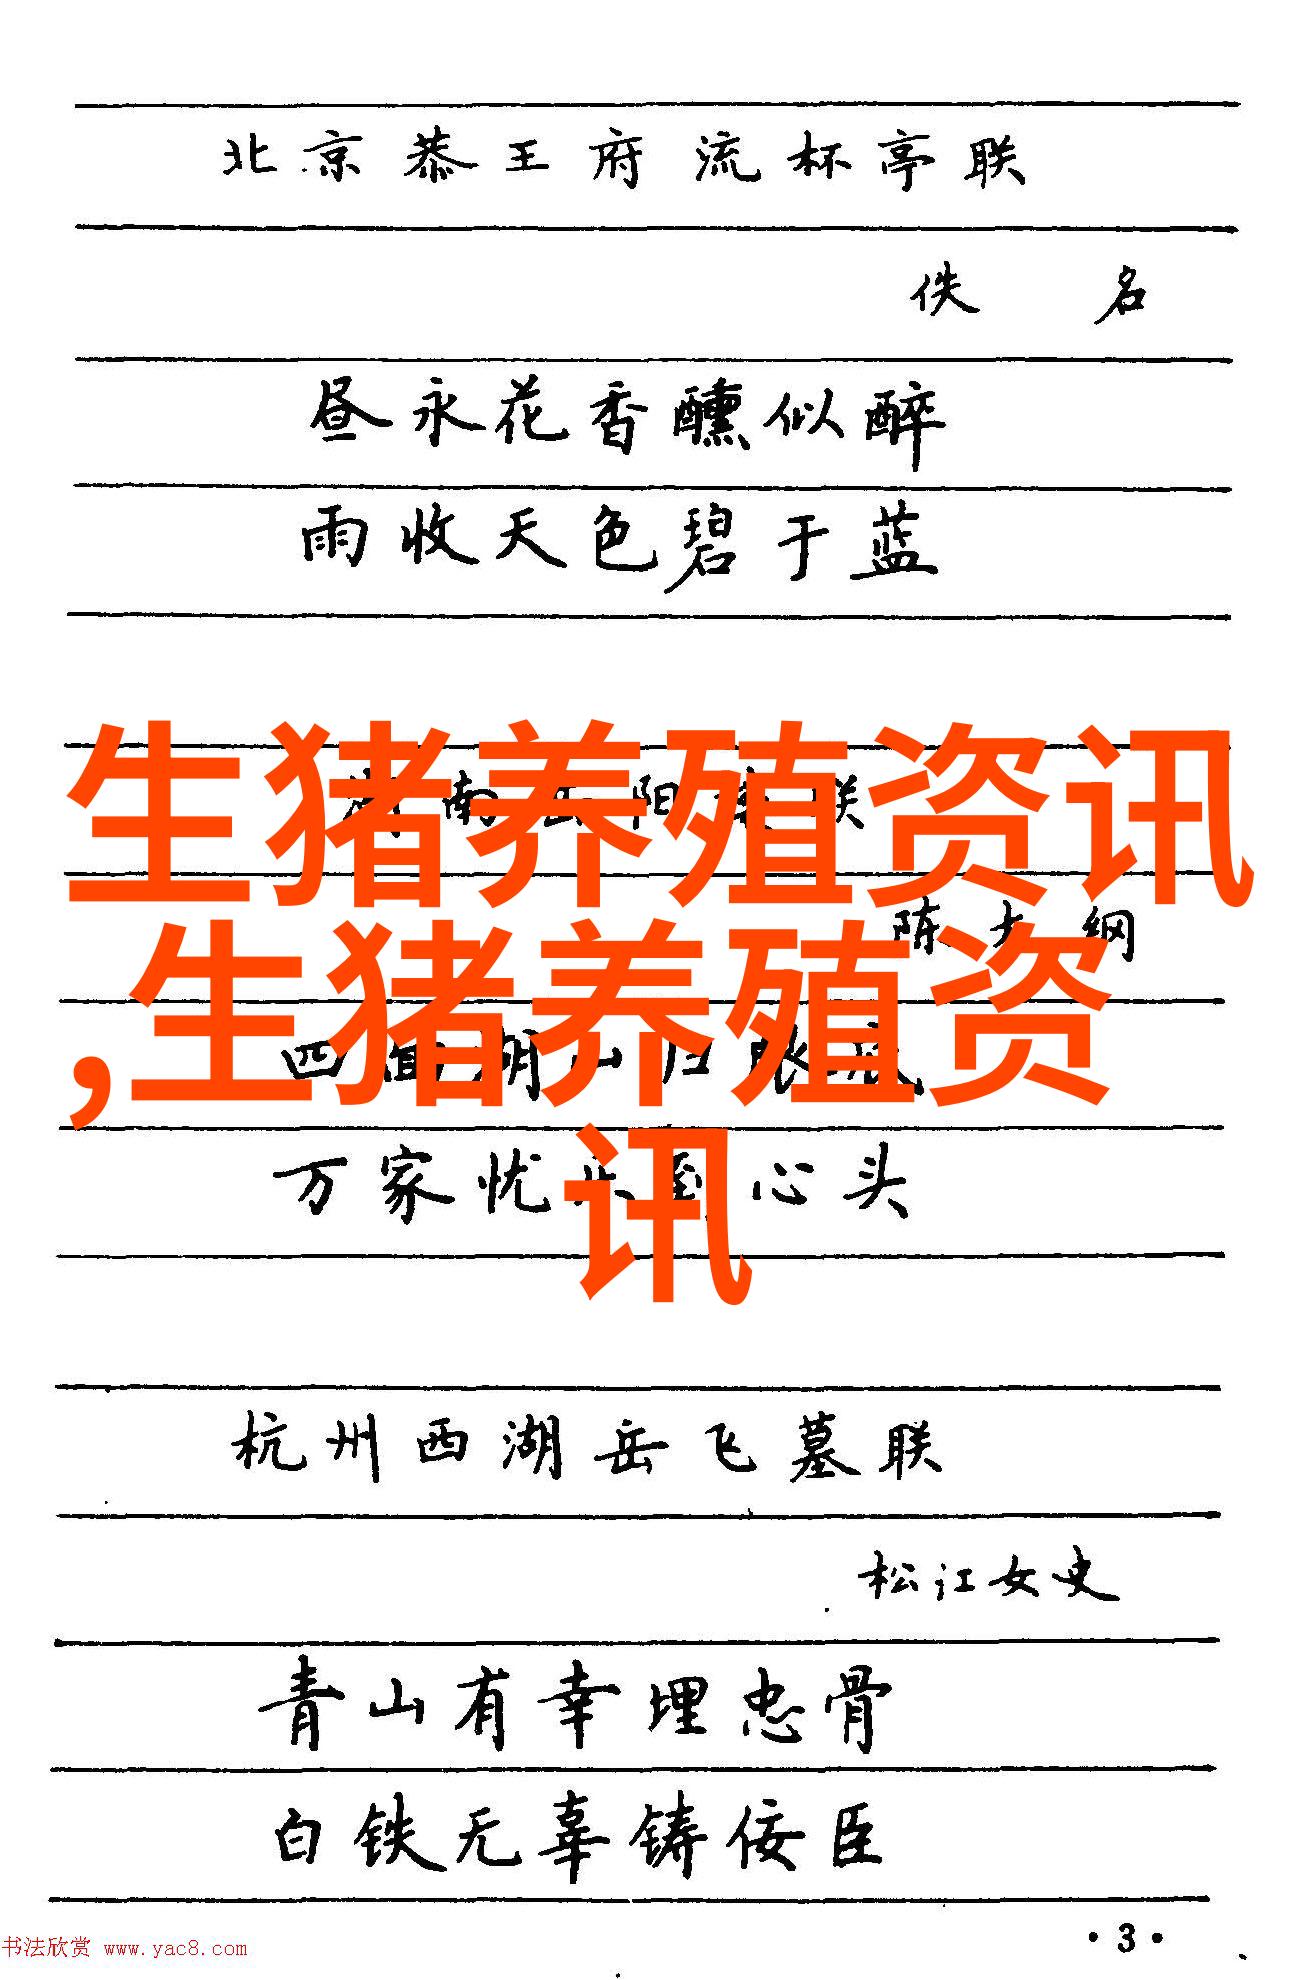 北京恭王府流杯亭联
佚名
昼永花香醺似醉
雨收天色碧于蓝
生猪养殖资讯
南岳阳楼联
陈大纲
,生猪养殖资
四面湖山归眼底
讯
万家忧乐到心头
杭州西湖岳飞墓联
松江女史
青山有幸埋忠骨
白铁无辜铸佞臣
·3·
书法欣赏 www.yac8.com